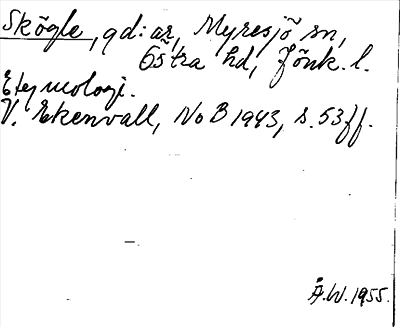 Skögle, gd:ar, Myresjö sn,
Östra hd, Jönk. l.
Etymologi.
V. Ekenvall, NoB 1943, s. 53 ff.
Å.W. 1955.